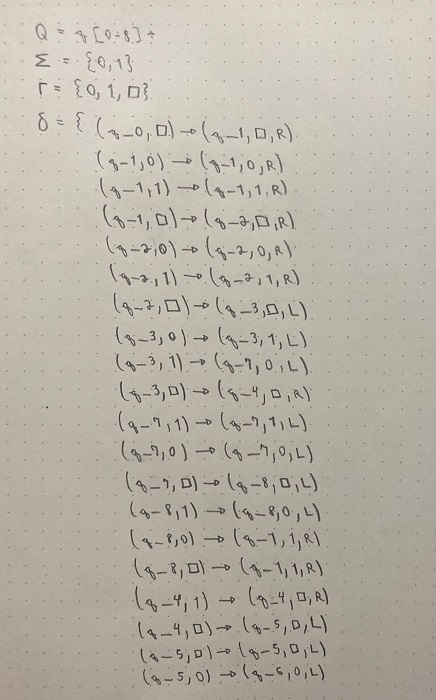 Q = q[0-8]+
Σ = {0,1}
Γ = {0, 1, □}
δ = { (q-0, □) → (q-1, □, R)
(q-1, 0) → (q-1, 0, R)
(q-1, 1) → (q-1, 1, R)
(q-1, □) → (q-2, □, R)
(q-2, 0) → (q-2, 0, R)
(q-2, 1) → (q-2, 1, R)
(q-2, □) → (q-3, □, L)
(q-3, 0) → (q-3, 1, L)
(q-3, 1) → (q-7, 0, L)
(q-3, □) → (q-4, □, R)
(q-7, 1) → (q-7, 1, L)
(q-7, 0) → (q-7, 0, L)
(q-7, □) → (q-8, □, L)
(q-8, 1) → (q-8, 0, L)
(q-8, 0) → (q-1, 1, R)
(q-8, □) → (q-1, 1, R)
(q-4, 1) → (q-4, □, R)
(q-4, □) → (q-5, □, L)
(q-5, □) → (q-5, □, L)
(q-5, 0) → (q-6, 0, L)